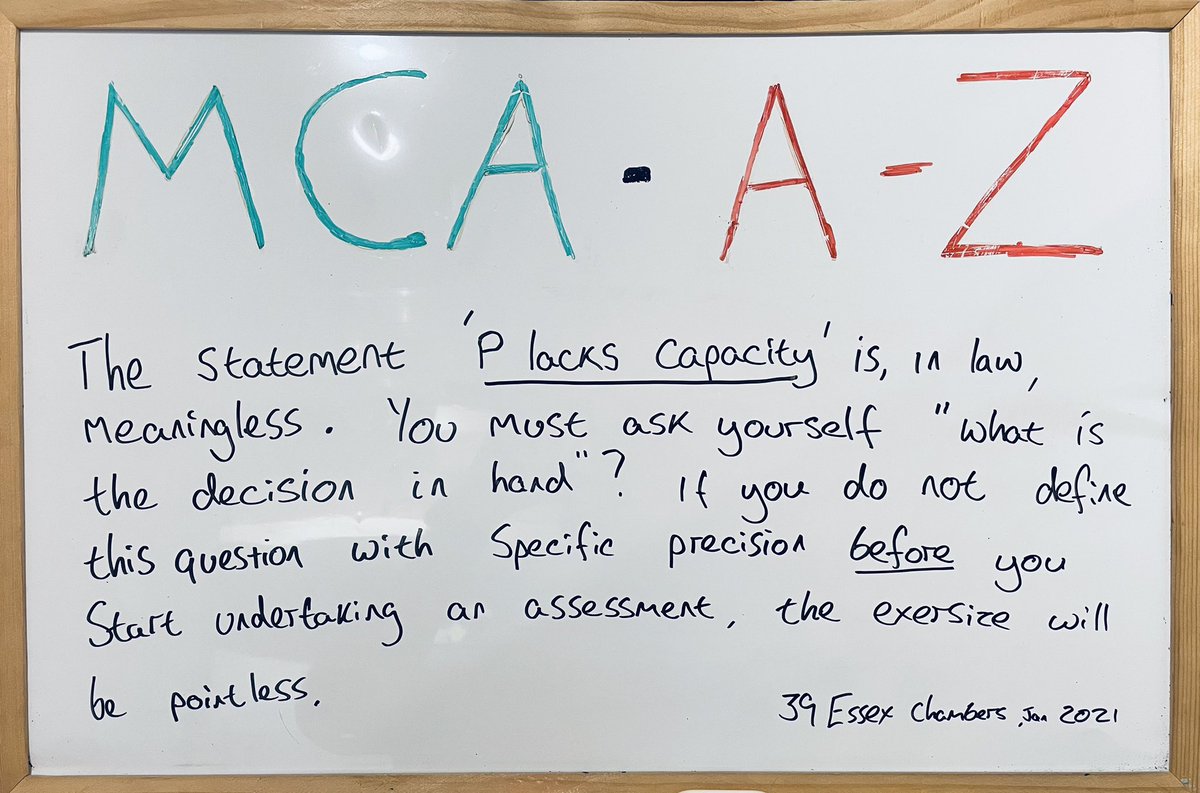 MCA - A - Z
The statement 'P lacks capacity' is, in law,
meaningless. You must ask yourself "what is
the decision in hand"? If you do not define
this question with specific precision before you
start undertaking an assessment, the exersize will
be pointless.
39 Essex Chambers, Jan 2021